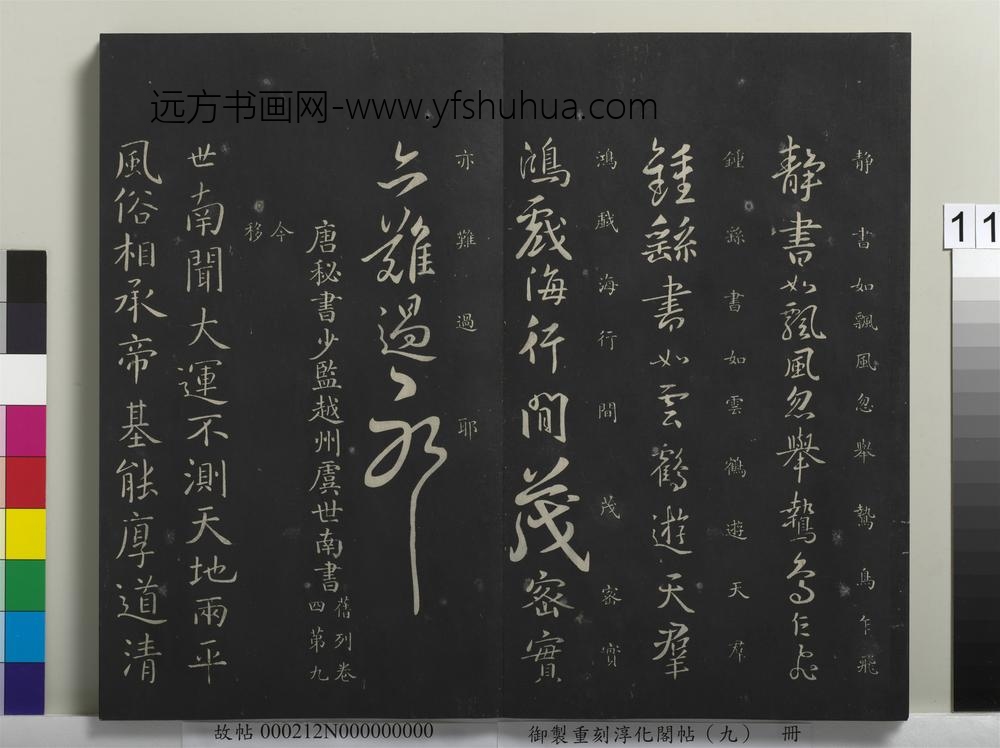 远方书画网-www.yfshuhua.com
静書如飄風忽舉鷙鳥乍飛
静書如飄風忽舉鷙鳥乍飛
鍾繇書如雲鵠遊天羣
鍾繇書如雲鵠遊天羣
鴻戲海行間茂密實
鴻戲海行間茂密實
亦難過耶
亦難過耶
唐秘書少監越州虞世南書
舊列卷
四第九
今
移
世南聞大運不測天地兩平
風俗相承帝基能厚道清
11
故帖 000212N000000000
御製重刻淳化閣帖（九） 冊